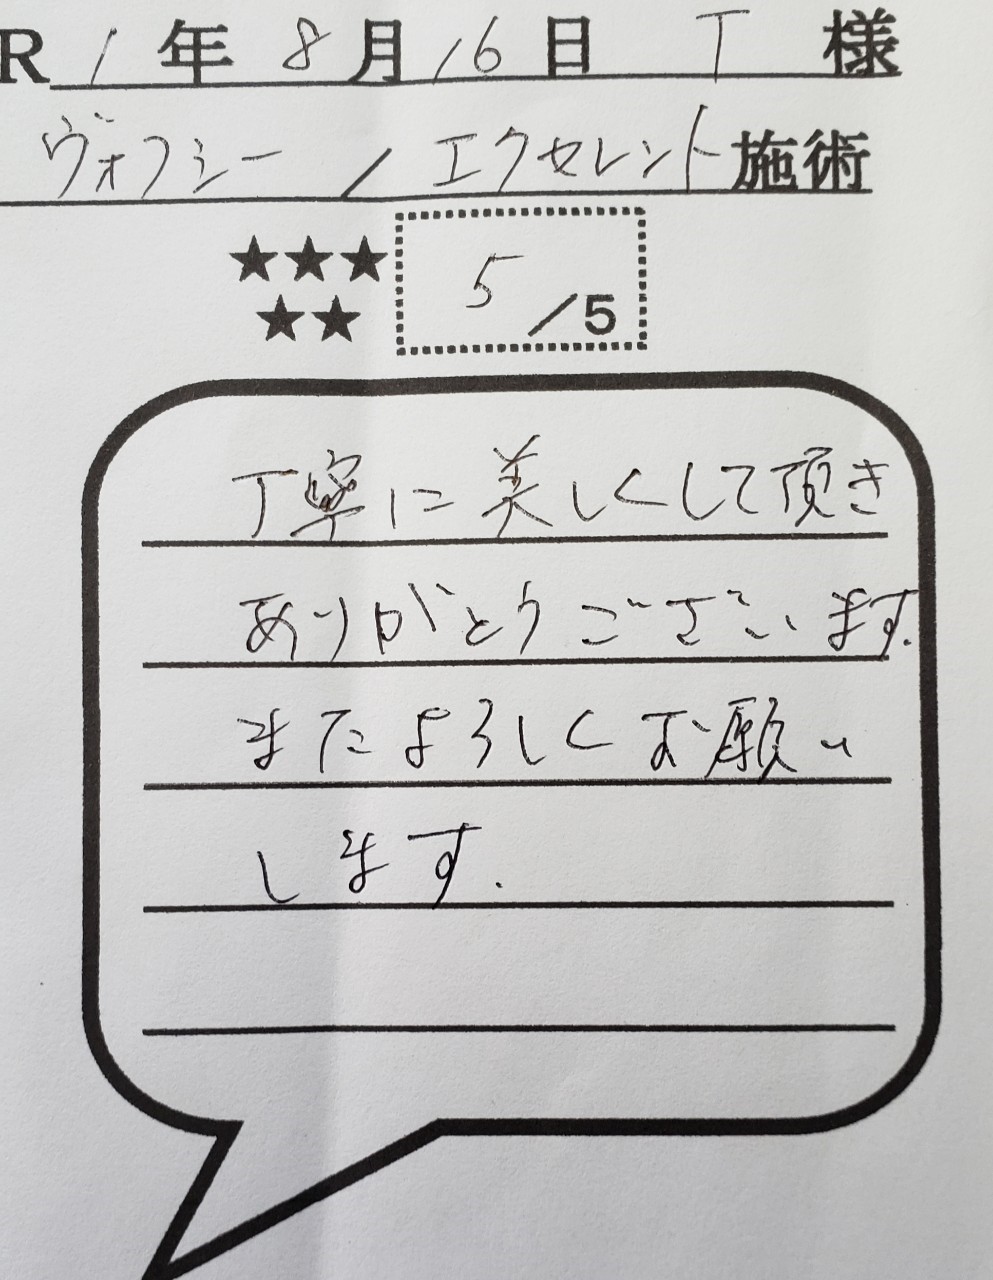 R 1 年 8 月 16 日 T 様
ヴォクシー / エクセレント 施術
★★★
★★
5 /5
丁寧に美しくして頂き
ありがとうございます.
またよろしくお願い
します.